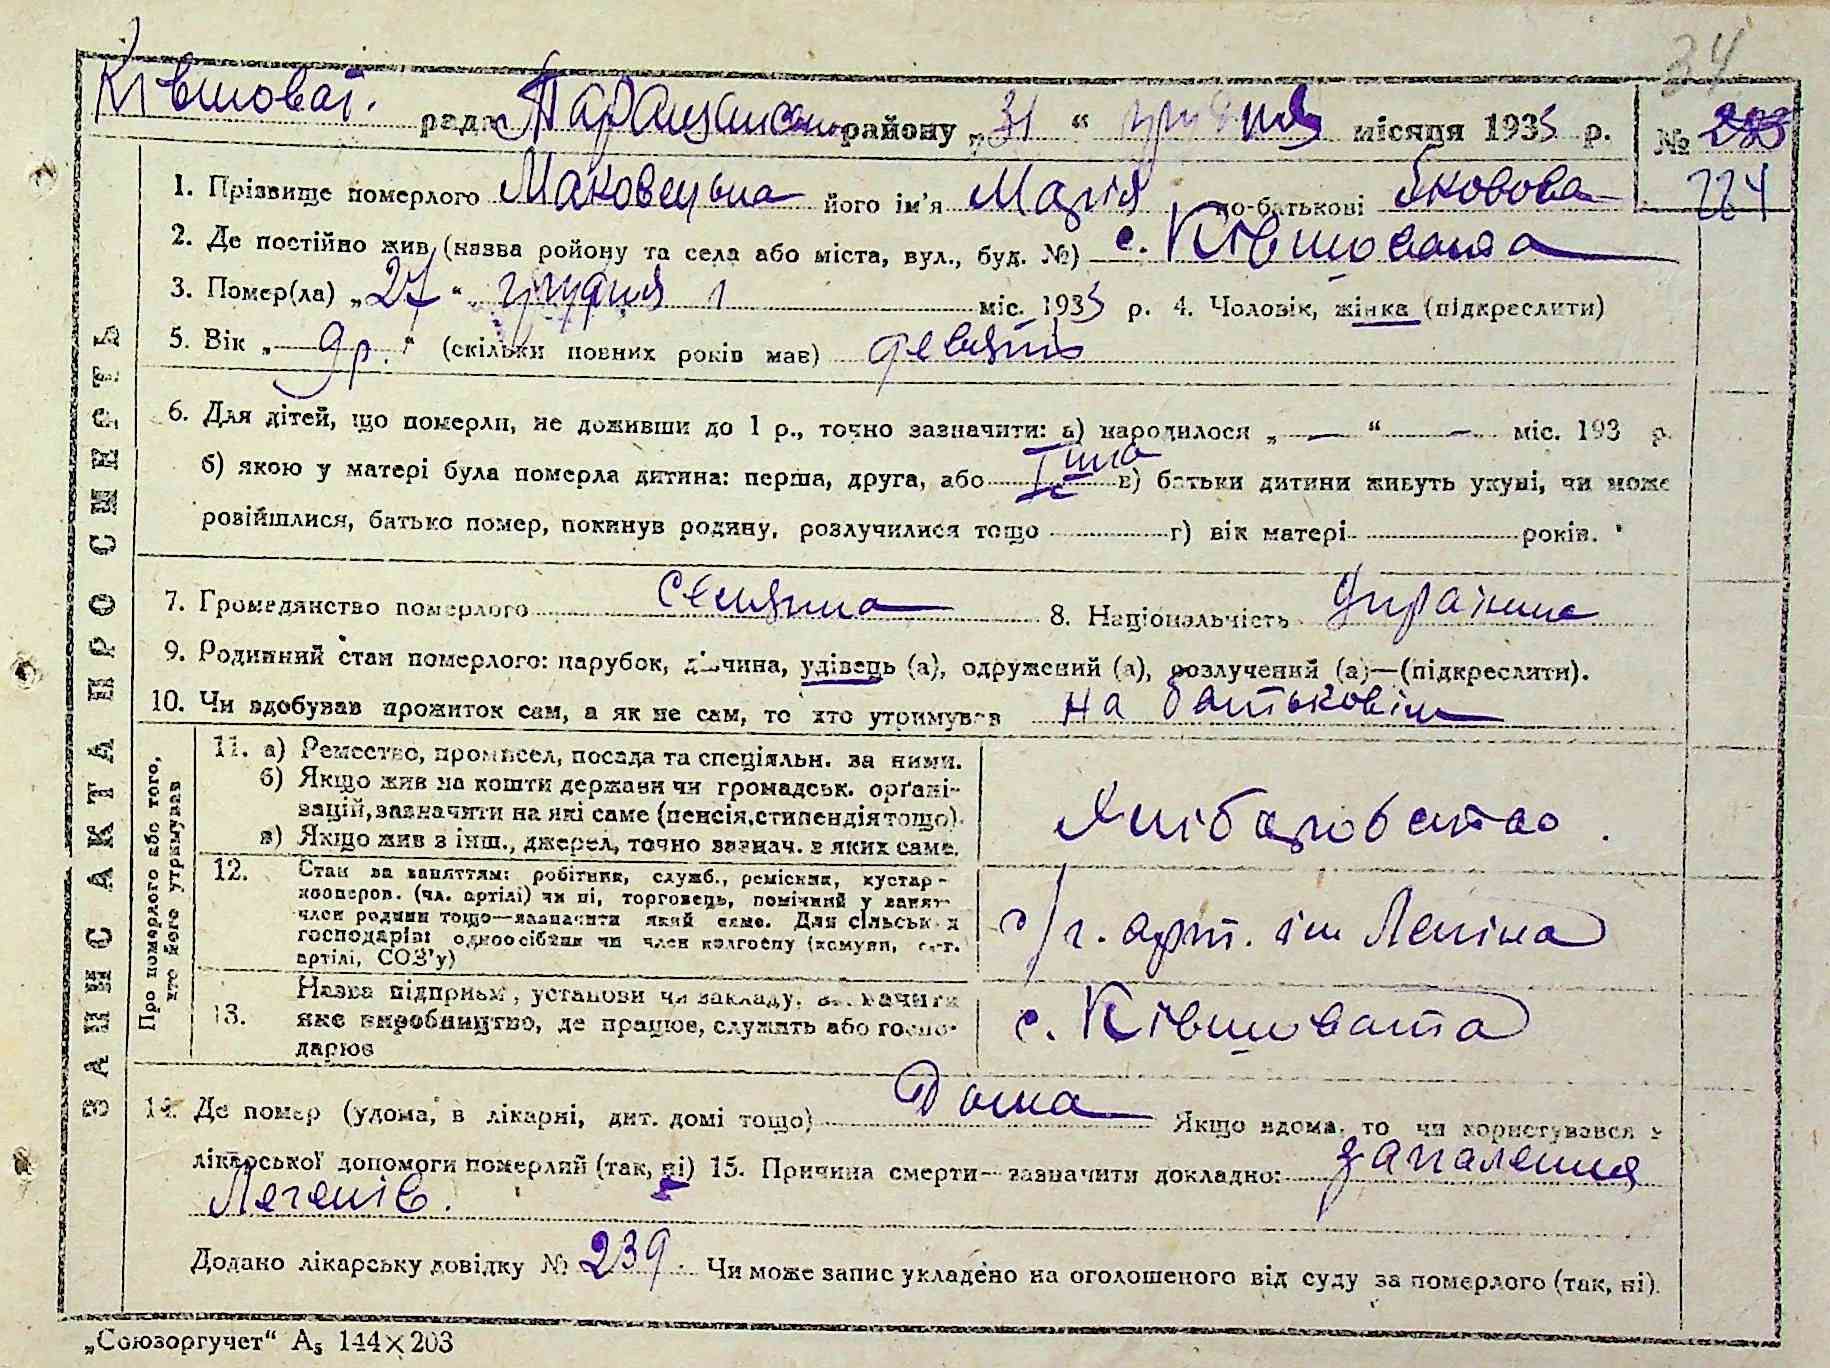 34
Ківшоват. рада Таращанськ. району „31“ грудня місяця 1935 р. № 223
224
1. Прізвище померлого Маковецька його ім'я Марія по-батькові Яковова
2. Де постійно жив (назва ройону та села або міста, вул., буд. №) с. Ківшовата
3. Помер(ла) „27“ грудня міс. 1935 р. 4. Чоловік, жінка (підкреслити)
5. Вік „9 р.“ (скільки повних років мав) девять
6. Для дітей, що померли, не доживши до 1 р., точно зазначити: а) народилося „—“ — міс. 193 р.
б) якою у матері була померла дитина: перша, друга, або в) батьки дитини живуть укупі, чи може
розійшлися, батько помер, покинув родину, розлучилися тощо г) вік матері років.
7. Громадянство померлого 8. Національність Українка
9. Родинний стан померлого: парубок, дівчина, удівець (а), одружений (а), розлучений (а)—(підкреслити).
10. Чи здобував прожиток сам, а як не сам, то хто утримував на батьковім
ЗАПИС АКТА ПРО СМЕРТЬ
Про померлого або того, хто його утримував
11. а) Ремество, промисел, посада та спеціяльн. за ними.
б) Якщо жив на кошти держави чи громадськ. орґані-
зацій, зазначити на які саме (пенсія, стипендія тощо).
в) Якщо жив з інш., джерел, точно зазнач. з яких саме.
Хліборобство.
12. Стан за заняттям: робітник, служб., ремісник, кустар-
кооперов. (чл. артілі) чи ні, торговець, помічний у занят.
член родини тощо—зазначити який саме. Для сільськ х
господарів: одноосібник чи член колгоспу (комуни, с.-г.
артілі, СОЗ'у)
с/г. арт. ім Леніна
13. Назва підприєм, установи чи закладу, зазначити
яке виробництво, де працює, служить або госпо-
дарює
с. Ківшовата
14. Де помер (удома, в лікарні, дит. домі тощо) Дома Якщо вдома, то чи користувався з
лікарської допомоги померлий (так, ні) 15. Причина смерти—зазначити докладно: запалення
Легенів.
Додано лікарську довідку № 239. Чи може запис укладено на оголошеного від суду за померлого (так, ні).
„Союзоргучет“ А₅ 144×203